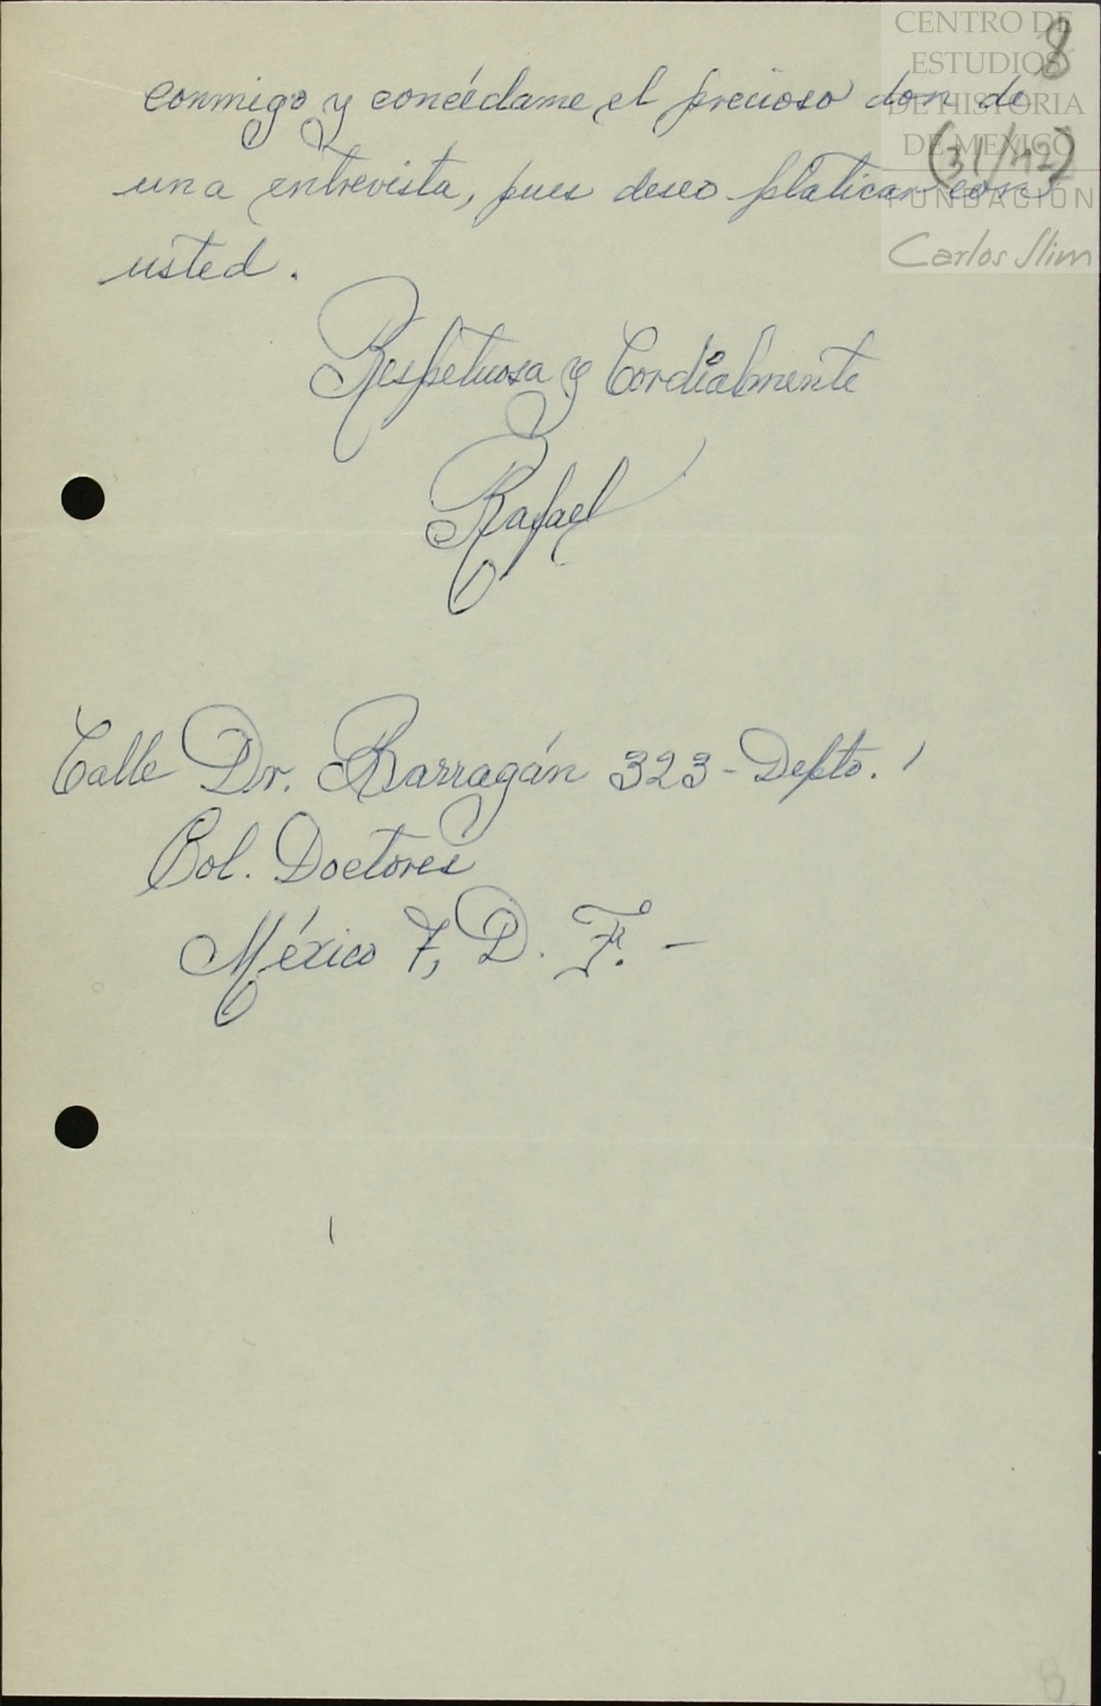 CENTRO DE
ESTUDIOS
DE HISTORIA
DE MEXICO
FUNDACIÓN
Carlos Slim
8
conmigo y concédame el precioso don de
una entrevista, pues deseo platicar con
usted.
Respetuosa y Cordialmente
Rafael
Calle Dr. Barragán 323-Depto. 1
Col. Doctores
México 7, D. F. -
8